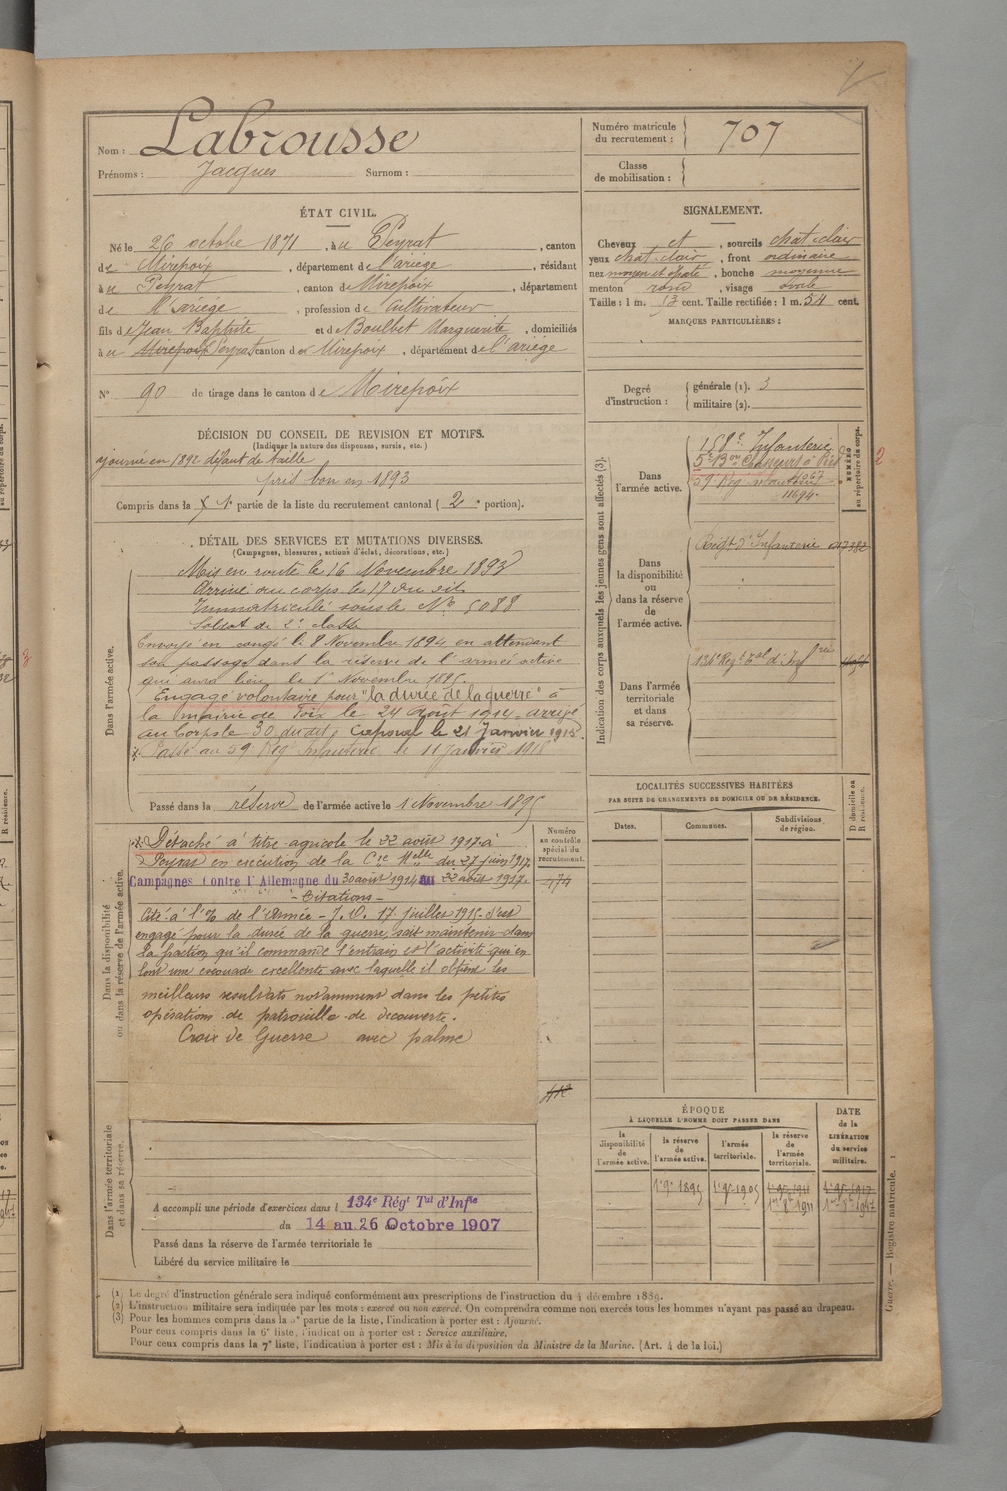 Nom : Labrousse
Prénoms : Jacques Surnom :
Numéro matricule du recrutement : 707
Classe de mobilisation :
ÉTAT CIVIL.
Né le 26 octobre 1871, à u Peyrat, canton
de Mirepoix, département de l'ariège, résidant
à u Peyrat, canton de Mirepoix, département
de l'Ariége, profession de Cultivateur
fils de Jean Baptiste et de Boulbet Marguerite, domiciliés
à u Mirepoix Peyrat canton de Mirepoix, département de l'ariége
N° 90 de tirage dans le canton de Mirepoix
SIGNALEMENT.
Cheveux et, sourcils chat. clair
yeux chat. clair, front ordinaire
nez moyen et épaté, bouche moyenne
menton rond, visage ovale
Taille : 1 m. 53 cent. Taille rectifiée : 1 m. 54 cent.
MARQUES PARTICULIÈRES :
Degré d'instruction : générale (1). 3
militaire (2).
DÉCISION DU CONSEIL DE REVISION ET MOTIFS.
(Indiquer la nature des dispenses, sursis, etc.)
ajourné en 1892 défaut de taille
pris bon en 1893
Compris dans la 1e partie de la liste du recrutement cantonal ( 2e portion).
DÉTAIL DES SERVICES ET MUTATIONS DIVERSES.
(Campagnes, blessures, actions d'éclat, décorations, etc.)
Dans l'armée active.
Mis en route le 16 Novembre 1893
Arrivé au corps le 17 du dit
Immatriculé sous le No 5088
Soldat de 2e classe
Envoyé en congé le 8 Novembre 1894 en attendant
son passage dans la réserve de l'armée active
qui aura lieu le 1er Novembre 1895.
Engagé volontaire pour "la durée de la guerre" à
la mairie de Foix le 24 Août 1914. arrivé
au Corps le 30 du dit, Caporal le 21 Janvier 1915.
Passé au 59 Rég Infanterie le 11 Janvier 1916
Passé dans la réserve de l'armée active le 1 Novembre 1895
Dans la disponibilité ou dans la réserve de l'armée active.
Détaché à titre agricole le 22 août 1917 à
Peyrat en exécution de la Cre Melle du 27 juin 1917.
Campagnes Contre l'Allemagne du 30 août 1914 au 22 août 1917.
- Citations -
Cité à l'% de l'Armée - J.O. 17 juillet 1915. S'est
engagé pour la durée de la guerre, sait maintenir dans
la fraction qu'il commande l'entrain et l'activité qui en
font une escouade excellente avec laquelle il obtient les
meilleurs resultats notamment dans les petites
opérations de patrouille de découverte.
Croix de Guerre avec palme
Numéro au contrôle spécial du recrutement.
474
Dans l'armée territoriale et dans sa réserve.
A accompli une période d'exercices dans l 134e Régt Tal d'Infie
du 14 au 26 Octobre 1907
Passé dans la réserve de l'armée territoriale le
Libéré du service militaire le
Indication des corps auxquels les jeunes gens sont affectés (3).
NUMÉRO au répertoire du corps.
Dans l'armée active.
158e Infanterie
5e Bon Chasseurs à Pied
4067
59 Rég Infanterie
11694.
2
Dans la disponibilité ou dans la réserve de l'armée active.
Régt d'Infanterie
Dans l'armée territoriale et dans sa réserve.
Regt Tal d'Infrie
LOCALITÉS SUCCESSIVES HABITÉES
PAR SUITE DE CHANGEMENTS DE DOMICILE OU DE RÉSIDENCE.
Dates. Communes. Subdivisions de région.
D domicile ou R résidence.
ÉPOQUE
À LAQUELLE L'HOMME DOIT PASSER DANS
la disponibilité de l'armée active.
la réserve de l'armée active.
l'armée territoriale.
la réserve de l'armée territoriale.
DATE de la LIBÉRATION du service militaire.
1 9e 1895 1 9e 1905 1 9e 1911 1 9e 1917
1er 8e 1911
Guerre. — Registre matricule. 1
(1) Le degré d'instruction générale sera indiqué conformément aux prescriptions de l'instruction du 4 décembre 1889.
(2) L'instruction militaire sera indiquée par les mots : exercé ou non exercé. On comprendra comme non exercés tous les hommes n'ayant pas passé au drapeau.
(3) Pour les hommes compris dans la 5e partie de la liste, l'indication à porter est : Ajourné.
Pour ceux compris dans la 6e liste, l'indication à porter est : Service auxiliaire.
Pour ceux compris dans la 7e liste, l'indication à porter est : Mis à la disposition du Ministre de la Marine. (Art. 4 de la loi.)